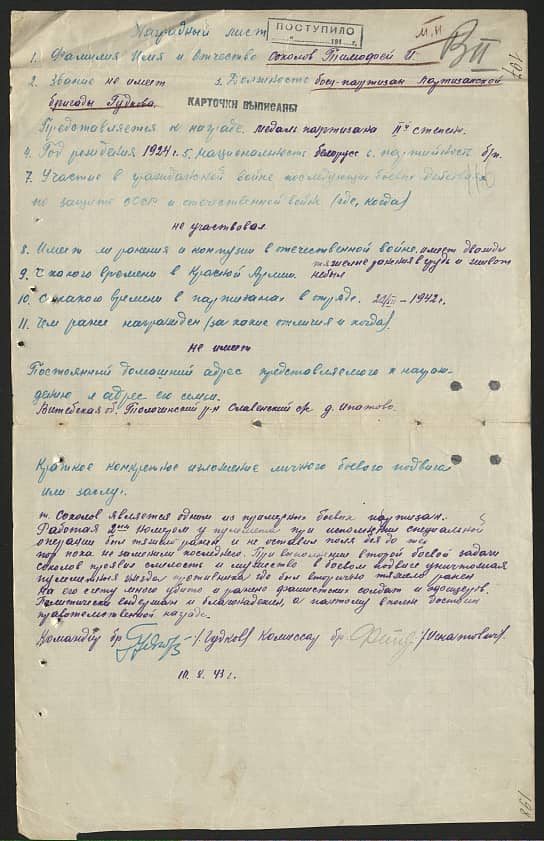 Наградный лист
ПОСТУПИЛО
194 г.
М.П
ВП
107
1. Фамилия Имя и Отчество Соколов Тимофей П.
2. Звание не имеет 3. Должность боец-партизан Партизанской
бригады Гудкова.
КАРТОЧКИ ВЫПИСАНЫ
Представляется к награде. медаль партизана IIй степени.
4. Год рождения 1924 г. 5. национальность белорус 6. партийность бп.
7. Участие в гражданской войне последующих боевых действиях
по защите СССР и отечественной войне (где, когда)
не участвовал
8. Имеет ли ранения и контузии в отечественной войне. имеет дважды
тяжелые ранения в грудь и живот
9. С какого времени в Красной Армии. не был
10. С какого времени в партизанах в отряде. 1942 г.
11. Чем ранее награжден (за какие отличия и когда).
не имеет
Постоянный домашний адрес представляемого к награж-
дению и адрес его семьи.
Витебская об. Толочинский р-н Славенский с/с д. Ипатово.
Краткое конкретное изложение личного боевого подвига
или заслуг.
т. Соколов является одним из примерных боевых партизан.
Работая 2ым номером у пулемета при исполнении специальной
операции был тяжело ранен и не оставил поля боя до тех
пор пока не заменили последнего. При выполнении второй боевой задачи
Соколов проявил смелость и мужество в боевом подвиге уничтожая
пулеметные гнезда противника где был вторично тяжело ранен
На его счету много убито и ранено фашистских солдат и офицеров.
Политически выдержан и благонадежен, а поэтому вполне достоин
правительственной награде.
Командир бр. /Гудков/ Комиссар бр. /Игнатович/.
10. X. 43 г.
198